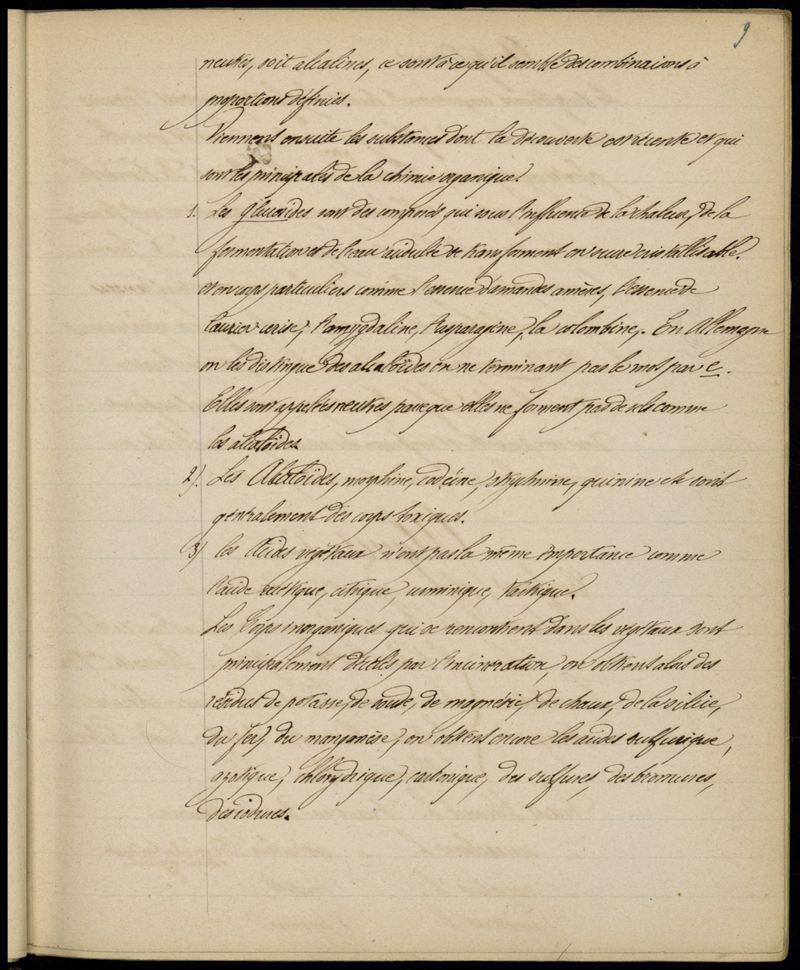 9
neutres, soit alcalines, ce sont à ce qu'il semble des combinaisons à
proportions définies.
Viennent ensuite les substances dont la découverte est récente et qui
sont les principales de la chimie organique.
1. Les glucosides sont des composés qui sous l'influence de la chaleur, de la
fermentation et de l'eau acidulée se transforment en sucre cristallisable.
et en corps particuliers comme l'essence d'amandes amères, l'essence de
laurier cerise, l'amygdaline, l'asparagine, la colombine. En Allemagne
on les distingue des alcaloïdes en ne terminant pas le mot par e.
Elles sont appelées neutres parce que elles ne forment pas de sels comme
les alcaloïdes.
2). Les Alcaloïdes, morphine, codéine, strychnine, quinine etc sont
généralement des corps toxiques.
3) Les Acides végétaux n'ont pas la même importance comme
l'acide acétique, citrique, tartrique.
Les Corps inorganiques qui se rencontrent dans les végétaux sont
principalement décelés par l'incinération, on obtient alors des
résidus de potasse, de soude, de magnésie, de chaux, de la silice,
du fer, du manganèse, on obtient encore les acides sulfurique,
azotique, chlorydrique, carbonique, des sulfures, des bromures,
des iodures.